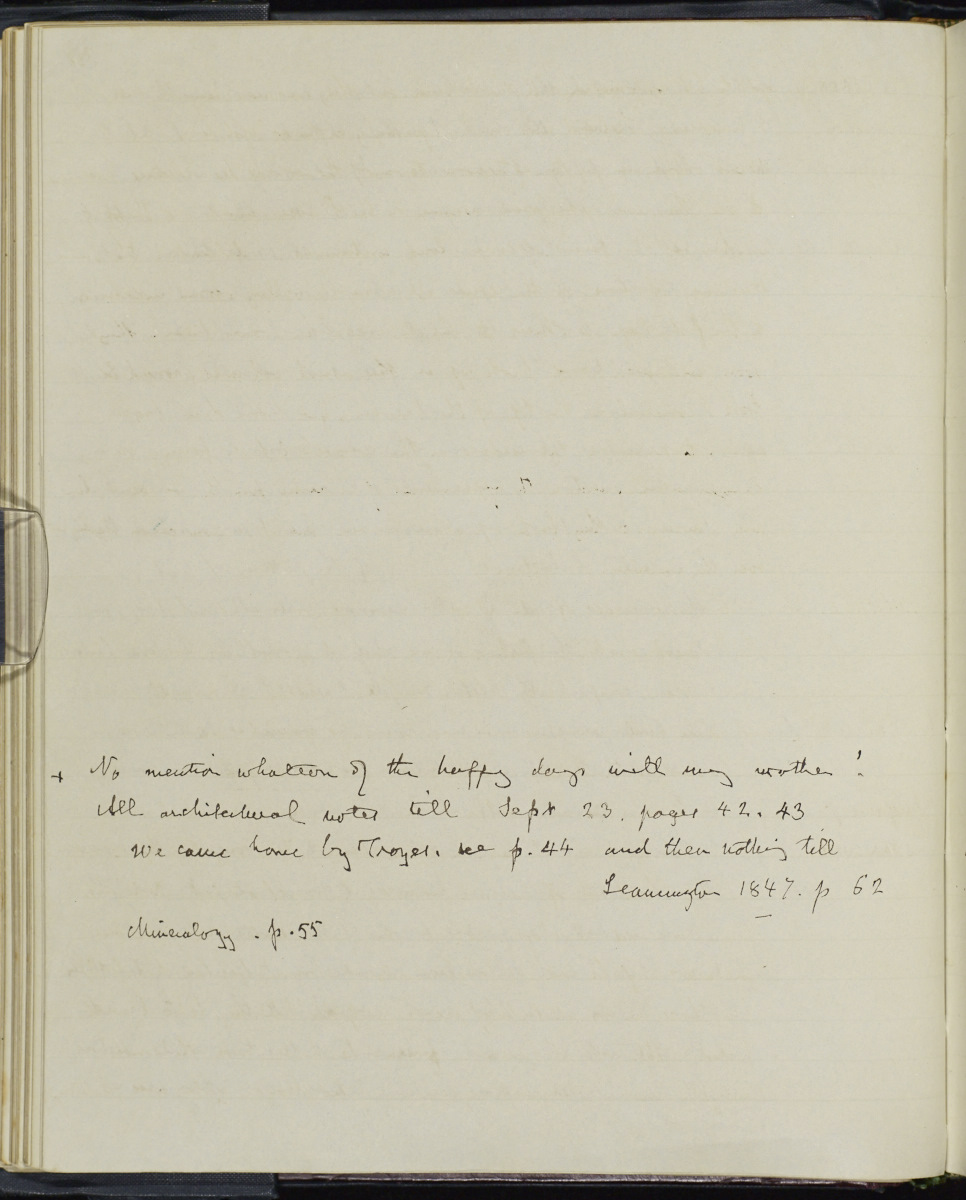 + No mention whatever of the happy days with my mother!
All architectural notes till Sept 23. pages 42. 43
We came home by Troyes. see p. 44 and then nothing till
Leamington 1847. p 62
Mineralogy. p. 55